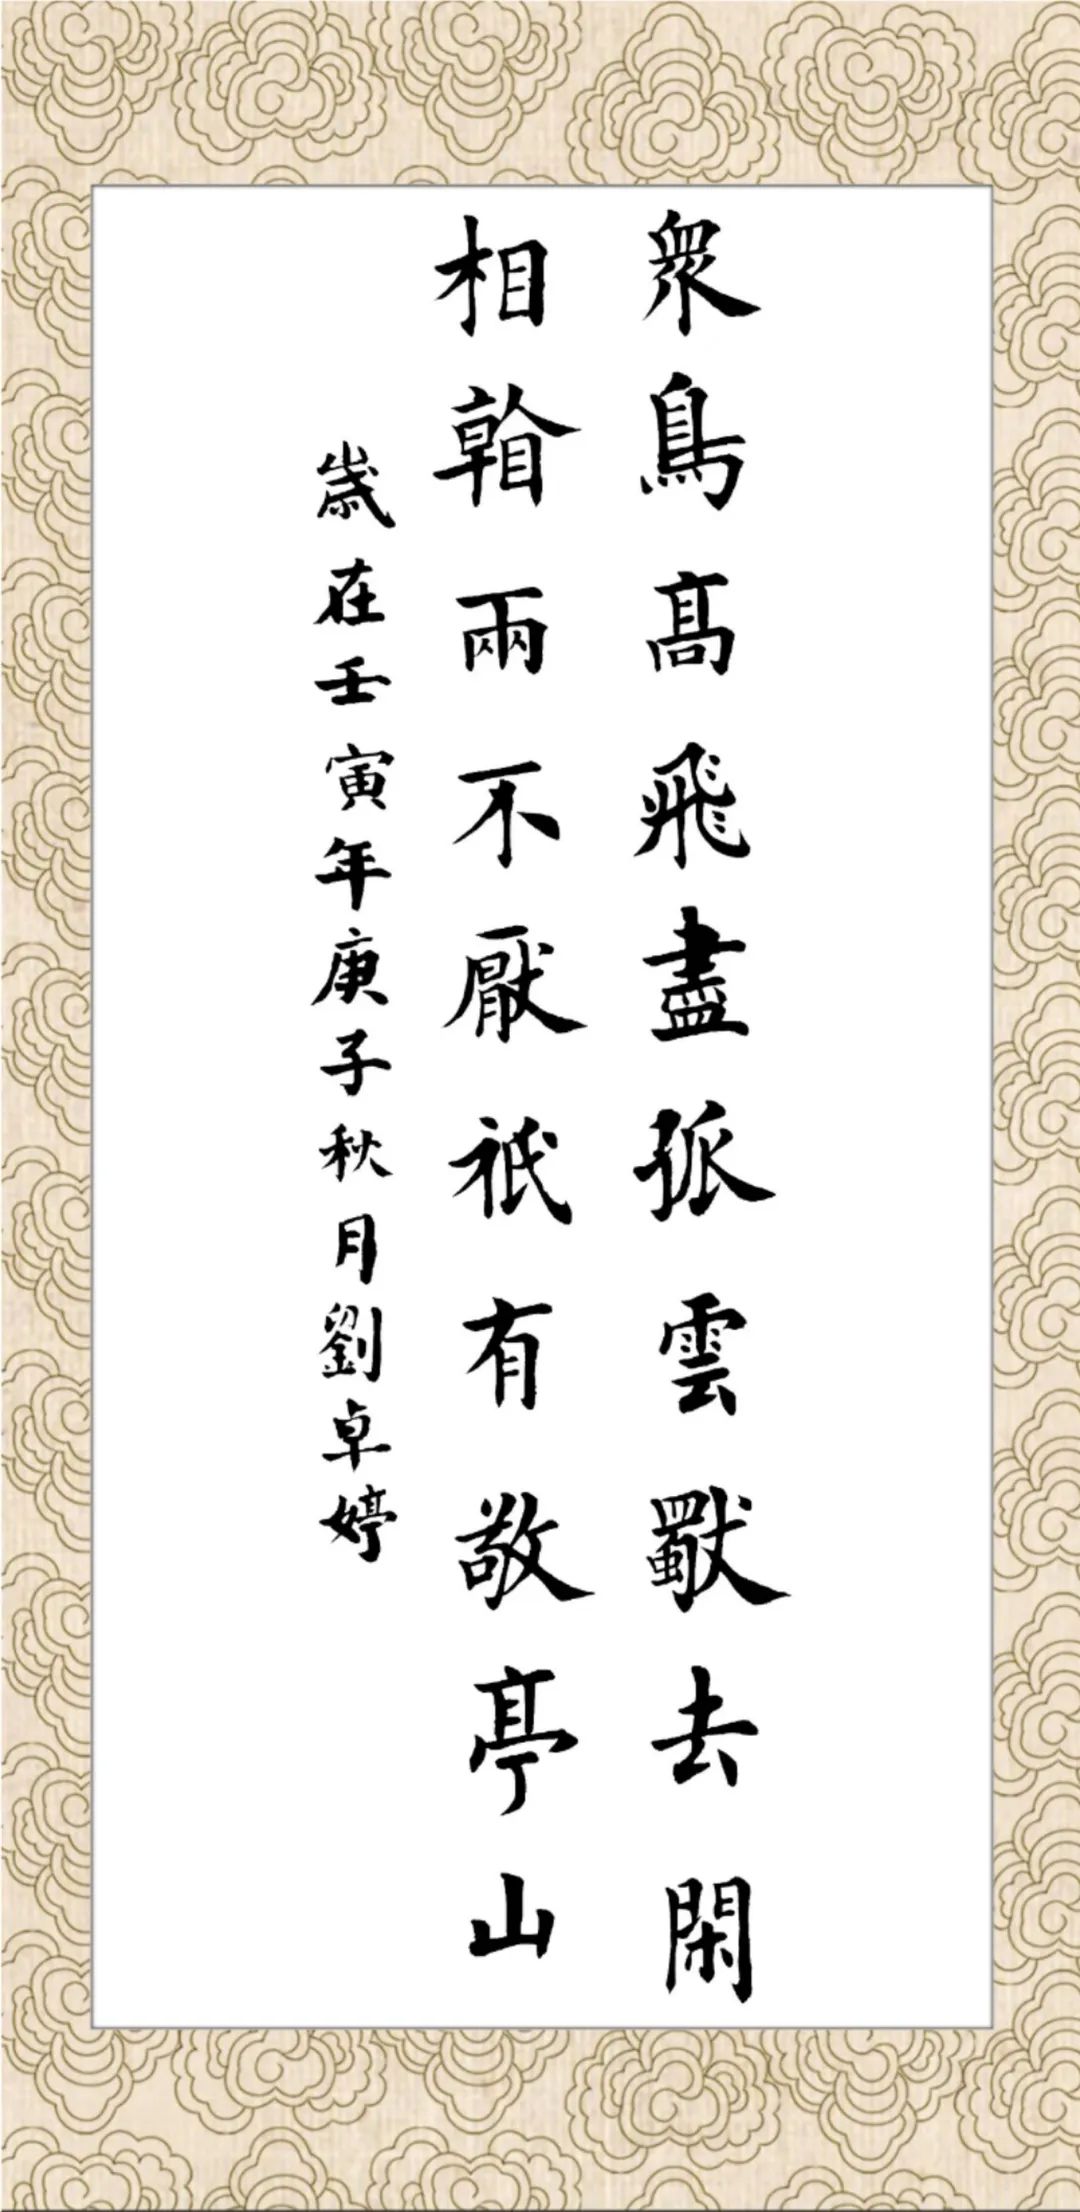 衆鳥髙飛盡孤雲獨去閑
相看兩不厭祇有敬亭山
歲在壬寅年庚子秋月劉卓婷